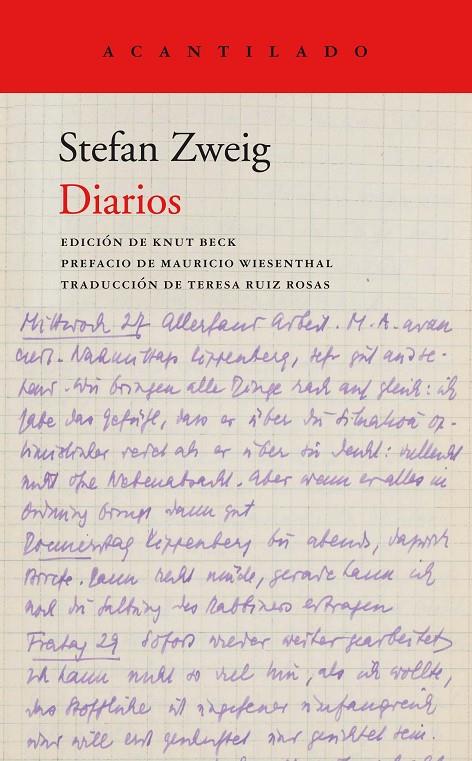 ACANTILADO
Stefan Zweig
Diarios
EDICIÓN DE KNUT BECK
PREFACIO DE MAURICIO WIESENTHAL
TRADUCCIÓN DE TERESA RUIZ ROSAS
Mittwoch 27 Allerhand Arbeit. M. A. avan
ciert. Nachmittags Kippenberg, sehr gut and
Wir bringen alle Dinge nach auf gleich: ich
habe das Gefühl, dass er über die Situation op-
timistischer als er über sie denkt: vielleicht
nicht ohne Nebenabsicht. Aber wenn er alles in
Ordnung bringt dann gut
Donnerstag Kippenberg bis abends, danach
Briefe. Dann recht müde, gerade kann ich
noch die des Rabbiners ertragen
Freitag 29 Sofort wieder weitergearbeitet,
ich kann nicht so viel hin, als ich wollte,
das Stoffliche ist umfangreich
will erst und gerichtet sein.